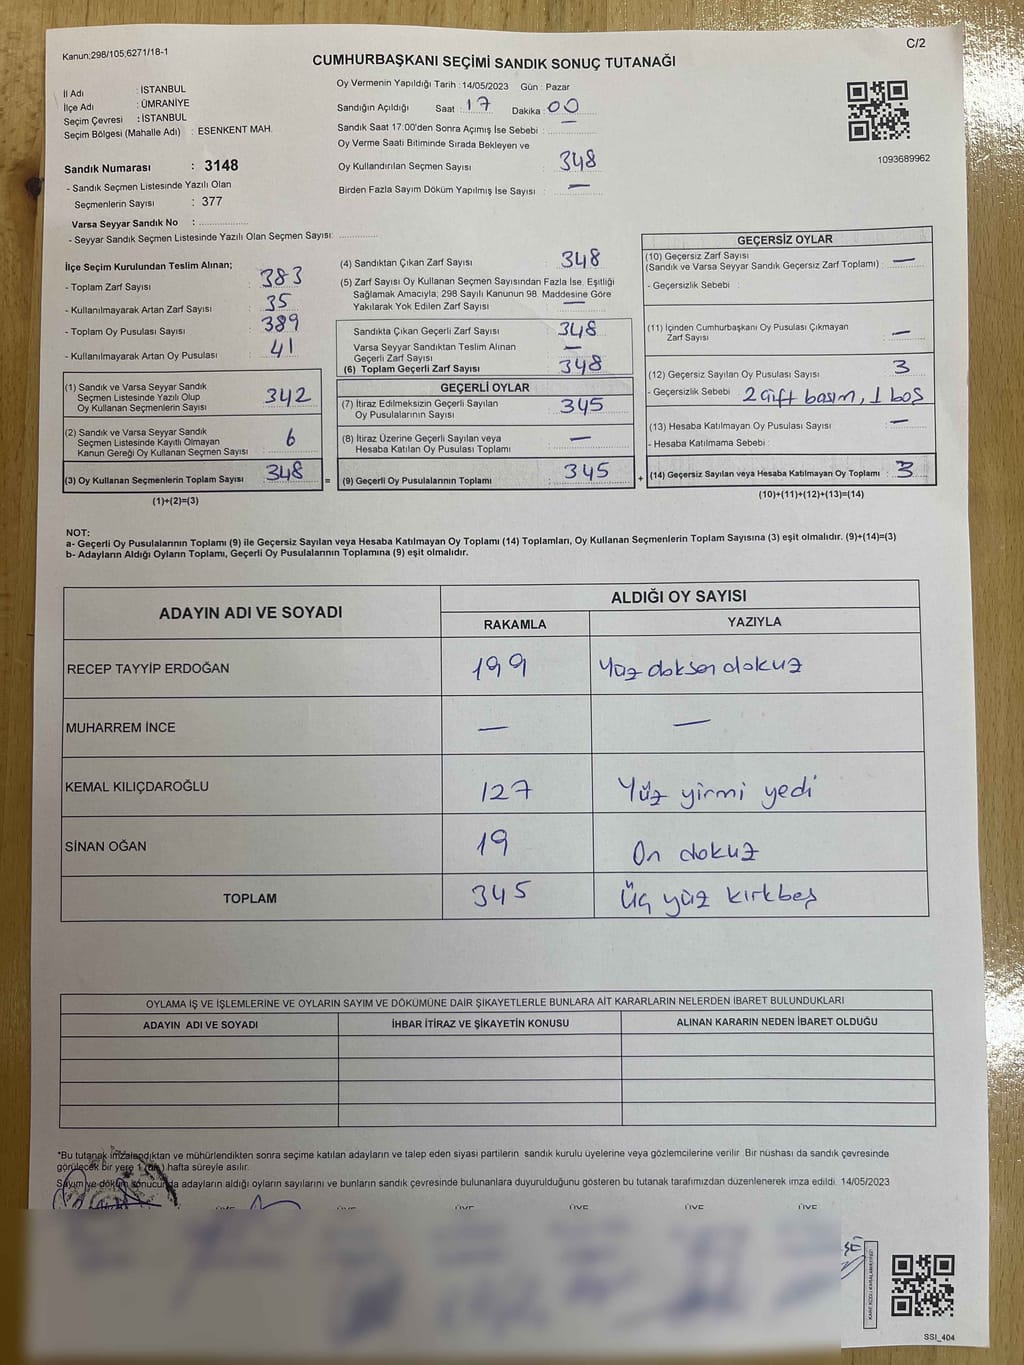 Kanun;298/105;6271/18-1
C/2
CUMHURBAŞKANI SEÇİMİ SANDIK SONUÇ TUTANAĞI
İl Adı : İSTANBUL
İlçe Adı : ÜMRANİYE
Seçim Çevresi : İSTANBUL
Seçim Bölgesi (Mahalle Adı) : ESENKENT MAH.
Sandık Numarası : 3148
- Sandık Seçmen Listesinde Yazılı Olan
Seçmenlerin Sayısı : 377
Varsa Seyyar Sandık No :
- Seyyar Sandık Seçmen Listesinde Yazılı Olan Seçmen Sayısı:
Oy Vermenin Yapıldığı Tarih : 14/05/2023 Gün : Pazar
Sandığın Açıldığı Saat : 17 Dakika : 00
Sandık Saat 17:00'den Sonra Açımış İse Sebebi : —
Oy Verme Saati Bitiminde Sırada Bekleyen ve
Oy Kullandırılan Seçmen Sayısı 348
Birden Fazla Sayım Döküm Yapılmış İse Sayısı : —
1093689962
İlçe Seçim Kurulundan Teslim Alınan;
- Toplam Zarf Sayısı : 383
- Kullanılmayarak Artan Zarf Sayısı : 35
- Toplam Oy Pusulası Sayısı : 389
- Kullanılmayarak Artan Oy Pusulası : 41
(1) Sandık ve Varsa Seyyar Sandık
Seçmen Listesinde Yazılı Olup
Oy Kullanan Seçmenlerin Sayısı 342
(2) Sandık ve Varsa Seyyar Sandık
Seçmen Listesinde Kayıtlı Olmayan
Kanun Gereği Oy Kullanan Seçmen Sayısı 6
(3) Oy Kullanan Seçmenlerin Toplam Sayısı 348
(1)+(2)=(3)
(4) Sandıktan Çıkan Zarf Sayısı 348
(5) Zarf Sayısı Oy Kullanan Seçmen Sayısından Fazla İse, Eşitliği
Sağlamak Amacıyla; 298 Sayılı Kanunun 98. Maddesine Göre
Yakılarak Yok Edilen Zarf Sayısı —
Sandıkta Çıkan Geçerli Zarf Sayısı 348
Varsa Seyyar Sandıktan Teslim Alınan
Geçerli Zarf Sayısı —
(6) Toplam Geçerli Zarf Sayısı 348
GEÇERLİ OYLAR
(7) İtiraz Edilmeksizin Geçerli Sayılan
Oy Pusulalarının Sayısı 345
(8) İtiraz Üzerine Geçerli Sayılan veya
Hesaba Katılan Oy Pusulası Toplamı —
= (9) Geçerli Oy Pusulalarının Toplamı 345
GEÇERSİZ OYLAR
(10) Geçersiz Zarf Sayısı
(Sandık ve Varsa Seyyar Sandık Geçersiz Zarf Toplamı) : —
- Geçersizlik Sebebi :
(11) İçinden Cumhurbaşkanı Oy Pusulası Çıkmayan
Zarf Sayısı —
(12) Geçersiz Sayılan Oy Pusulası Sayısı 3
- Geçersizlik Sebebi : 2 çift basım, 1 boş
(13) Hesaba Katılmayan Oy Pusulası Sayısı —
- Hesaba Katılmama Sebebi :
+ (14) Geçersiz Sayılan veya Hesaba Katılmayan Oy Toplamı : 3
(10)+(11)+(12)+(13)=(14)
NOT:
a- Geçerli Oy Pusulalarının Toplamı (9) ile Geçersiz Sayılan veya Hesaba Katılmayan Oy Toplamı (14) Toplamları, Oy Kullanan Seçmenlerin Toplam Sayısına (3) eşit olmalıdır. (9)+(14)=(3)
b- Adayların Aldığı Oyların Toplamı, Geçerli Oy Pusulalarının Toplamına (9) eşit olmalıdır.
ADAYIN ADI VE SOYADI
ALDIĞI OY SAYISI
RAKAMLA YAZIYLA
RECEP TAYYİP ERDOĞAN 199 Yüz doksan dokuz
MUHARREM İNCE — —
KEMAL KILIÇDAROĞLU 127 Yüz yirmi yedi
SİNAN OĞAN 19 On dokuz
TOPLAM 345 Üç yüz kırkbeş
OYLAMA İŞ VE İŞLEMLERİNE VE OYLARIN SAYIM VE DÖKÜMÜNE DAİR ŞİKAYETLERLE BUNLARA AİT KARARLARIN NELERDEN İBARET BULUNDUKLARI
ADAYIN ADI VE SOYADI İHBAR İTİRAZ VE ŞİKAYETİN KONUSU ALINAN KARARIN NEDEN İBARET OLDUĞU
*Bu tutanak imzalandıktan ve mühürlendikten sonra seçime katılan adayların ve talep eden siyasi partilerin sandık kurulu üyelerine veya gözlemcilerine verilir. Bir nüshası da sandık çevresinde
görülecek bir yere 1 (bir) hafta süreyle asılır.
Sayım ve döküm sonucunda adayların aldığı oyların sayılarını ve bunların sandık çevresinde bulunanlara duyurulduğunu gösteren bu tutanak tarafımızdan düzenlenerek imza edildi. 14/05/2023
ÜYE ÜYE ÜYE ÜYE ÜYE
SSI_404